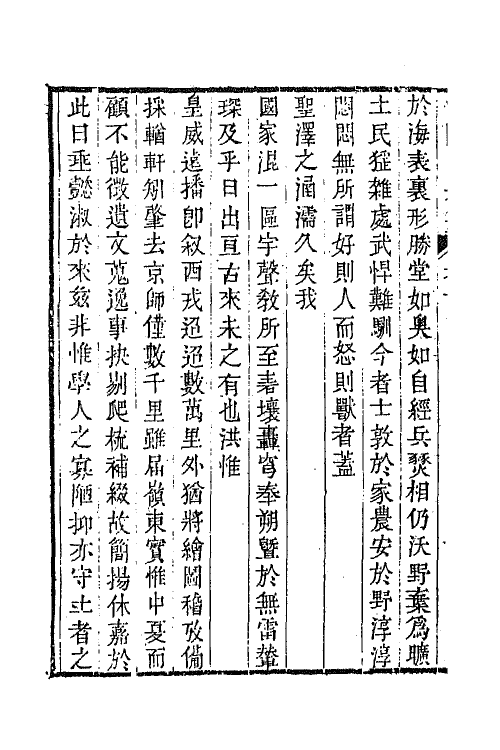 於海表裏形勝堂如奥如自經兵燹相仍沃野棄爲曠
土民猺雜處武悍難馴今者士敦於家農安於野淳淳
悶悶無所謂好則人而怒則獸者蓋
聖澤之涵濡久矣我
國家混一區宇聲敎所至砉壤轟穹奉朔曁於無雷輦
琛及乎日出亘古來未之有也洪惟
皇威遠播卽叙西戎迢迢數萬里外猶將繪圖稽攷備
採輶軒矧肇去京師僅數千里雖届嶺東實惟中夏而
顧不能徵遺文蒐逸事抉剔爬梳補綴故簡揚休嘉於
此日垂懿淑於來兹非惟學人之寡陋抑亦守土者之